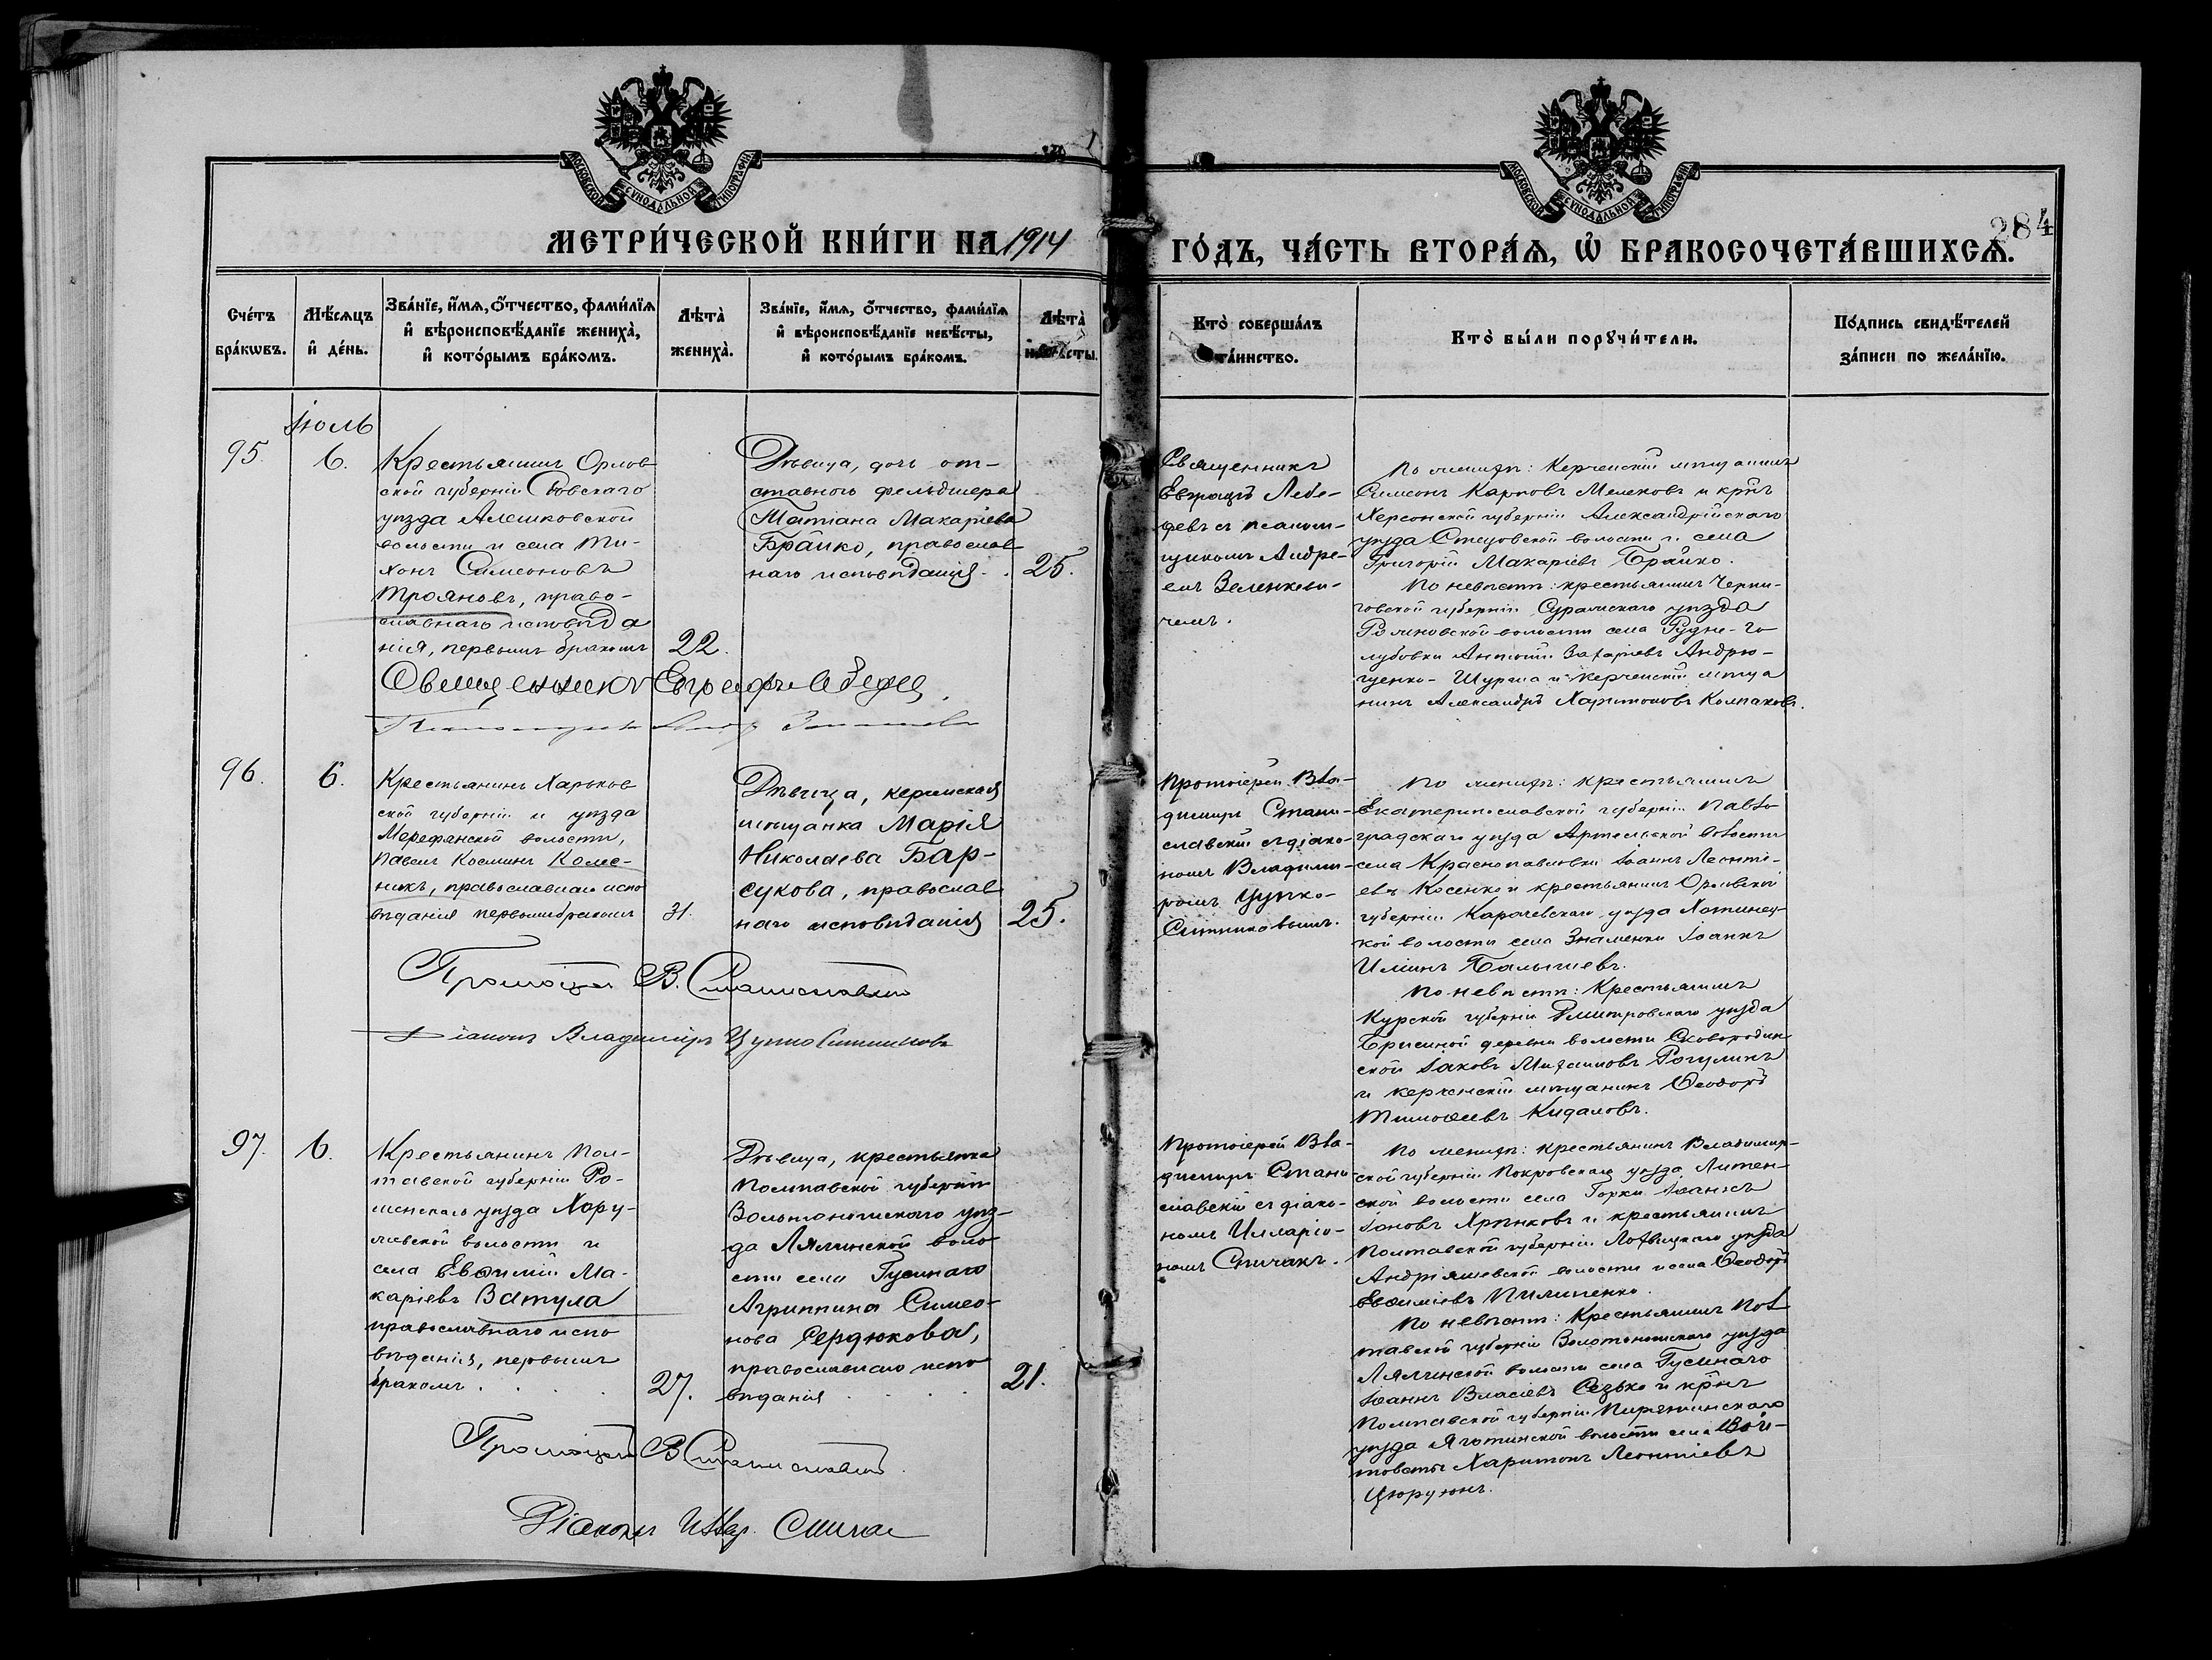 МОСКОВСКОЙ СѴНОДАЛЬНОЙ ТИПОГРАФІИ
МОСКОВСКОЙ СѴНОДАЛЬНОЙ ТИПОГРАФІИ
284
МЕТРИ́ЧЕСКОЙ КНИ́ГИ НА 1914 ГО́ДЪ, ЧА́СТЬ ВТОРА́Ѧ, Ѽ БРАКОСОЧЕТА́ВШИХСѦ.
Сче́тъ бра́кѡвъ.
Мѣ́сѧцъ и҆ де́нь.
Зва́нїе, и҆́мѧ, ѻ҆́тчество, фами́лїѧ и҆ вѣроисповѣ́данїе жениха̀, и҆ кото́рымъ бра́комъ.
Лѣта̀ жениха̀.
Зва́нїе, и҆́мѧ, ѻ҆́тчество, фами́лїѧ и҆ вѣроисповѣ́данїе невѣ́сты, и҆ кото́рымъ бра́комъ.
Лѣта̀ невѣ́сты.
Кто̀ соверша́лъ та́инство.
Кто̀ бы́ли порꙋчи́тели.
По́дпись свидѣ́телей за́писи по жела́нїю.
Іюль
95.
6.
Крестьянинъ Орлов
ской губерніи Сѣвскаго
уѣзда Алешковской
волости и села Ти-
хонъ Симеоновъ
Трояновъ, право-
славнаго исповѣда
нія, первымъ бракомъ
22.
Дѣвица, дочь от-
ставного фельдшера
Татіана Макаріева
Брайко, православ
наго исповѣданія.
25.
Священникъ
Евграфъ Лебе-
девъ съ псалом-
щикомъ Андре-
емъ Зеленкеви-
чемъ.
По женихѣ: Керченскій мѣщанинъ
Симеонъ Карповъ Мелековъ и кр–нъ
Херсонской губерніи Александрійскаго
уѣзда Стецовской волости и села
Григорій Макаріевъ Брайко.
По невѣстѣ: крестьянинъ Черни-
говской губерніи Суражскаго уѣзда
волости села Рудни-Го
лубовки Антоній Захаріевъ Андрю-
щенко-Шурма и Керченскій мѣща
нинъ Александръ Харитоновъ Колпаковъ.
Священникъ Евграфъ Лебедев
96.
6.
Крестьянинъ Харьков
ской губерніи и уѣзда
Мерефянской волости,
Павелъ Косминъ Колес-
никъ, православнаго испо
вѣданія первымъ бракомъ
31.
Дѣвица, керченская
мѣщанка Марія
Николаева Бар-
сукова, православ
наго исповѣданія
25.
Протоіерей Вла-
димиръ Стани-
славскій съ діако-
номъ Владими-
ромъ Цупко-
Ситниковымъ.
По женихѣ: крестьянинъ
Екатеринославской губерніи Павло
градскаго уѣзда Артельской волости
села Краснопавловки Іоаннъ Леонті-
евъ Косенко и крестьянинъ Орловской
губерніи Карачевскаго уѣзда Хотинец-
кой волости села Знаменки Іоаннъ
Иліинъ Балычевъ.
По невѣстѣ: Крестьянинъ
Курской губерніи Дмитровскаго уѣзда
деревни волости Сковородин
ской Іаковъ Рогулинъ
и керченскій мѣщанинъ Ѳеодоръ
Тимоѳеевъ Кидаловъ.
Протоіерей В. Станиславскій
Діаконъ Владиміръ Цупко Ситниковъ
97.
6.
Крестьянинъ Пол-
тавской губерніи Ро-
менскаго уѣзда Хору-
жевской волости и
села Евѳимій Ма-
каріевъ Ватула
православнаго испо
вѣданія, первымъ
бракомъ.
27.
Дѣвица, крестьянка
Полтавской губерніи
Золотоношскаго уѣз-
да Лялинской воло
сти села Гусинаго
Агриппина Симео-
нова Сердюкова,
православнаго испо
вѣданія
21.
Протоіерей Вла-
димиръ Стани-
славскій съ діако-
номъ Илларіо-
номъ Спичакъ.
По женихѣ: крестьянинъ Владимир-
ской губерніи Покровскаго уѣзда
ской волости села Горки Іоаннъ
Іоновъ Хрѣнковъ и крестьянинъ
Полтавской губерніи Лохвицкаго уѣзда
Андріяшевской волости и села Ѳеодоръ
Евѳиміевъ Пилипенко.
По невѣстѣ: Крестьянинъ Пол
тавской губерніи Золотоношскаго уѣзда
Лялинской волости села Гусинаго
Іоаннъ Власіевъ Сезько и кр–нъ
Полтавской губерніи Пирятинскаго
уѣзда Яготинской волости села Вой-
товцы Харитонъ Леонтіевъ
Протоіерей В Станиславскій
Діаконъ Иллар. Спичак